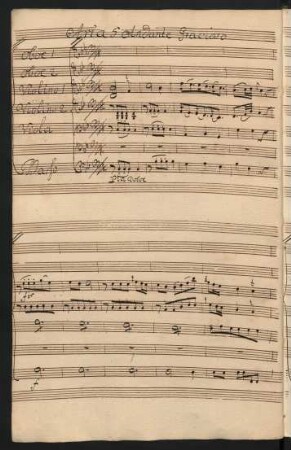 Aria 5 Andante Gracioso
Oboe 1
Oboe 2
Violino 1
Violino 2
Viola
Basso